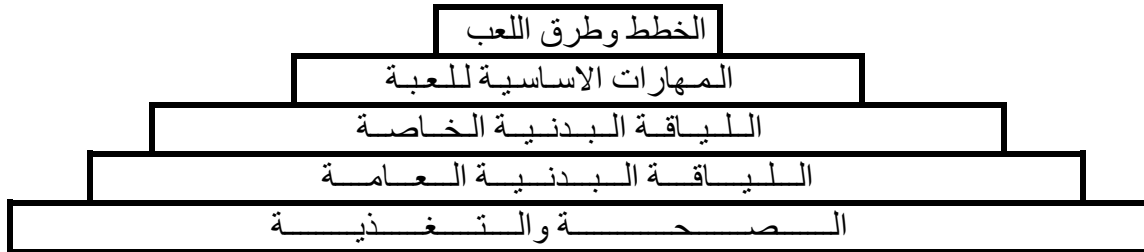 الخطط وطرق اللعب
المهارات الاساسية للعبة
اللياقة البدنية الخاصة
اللياقة البدنية العامة
الصحة والتغذية